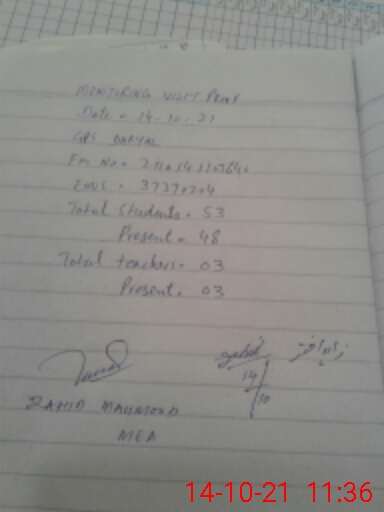 MONITORING VISIT PROOF
Date = 14-10-21
GPS
EMIS = 37370204
Total Students = 53
Present = 48
Total teachers = 03
Present = 03
زاہد اختر
14/10
ZAHID MAHMOOD
MEA
14-10-21 11:36